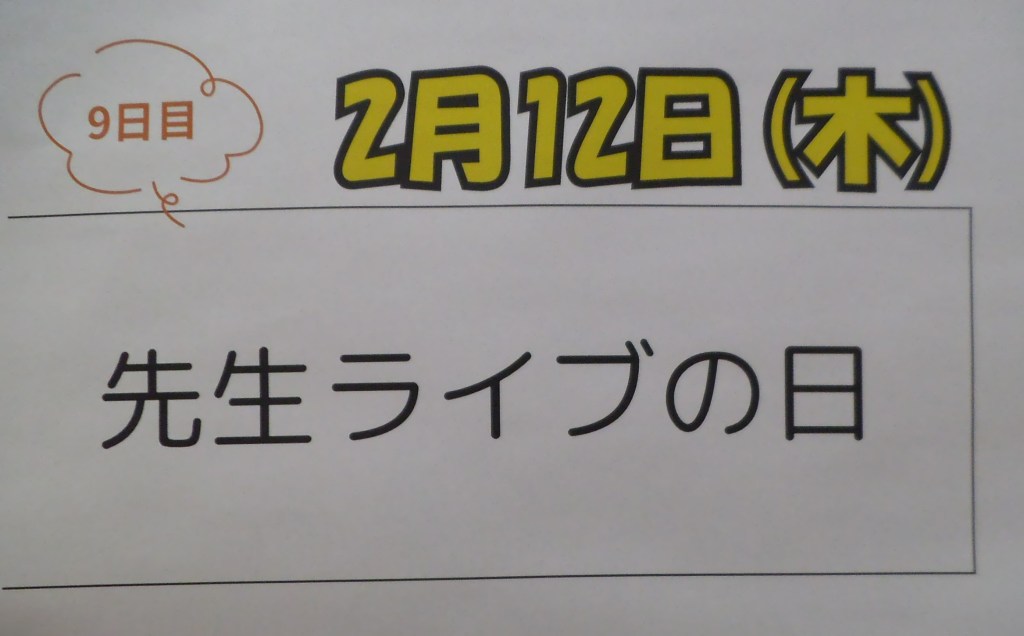 9日目
2月12日(木)
先生ライブの日